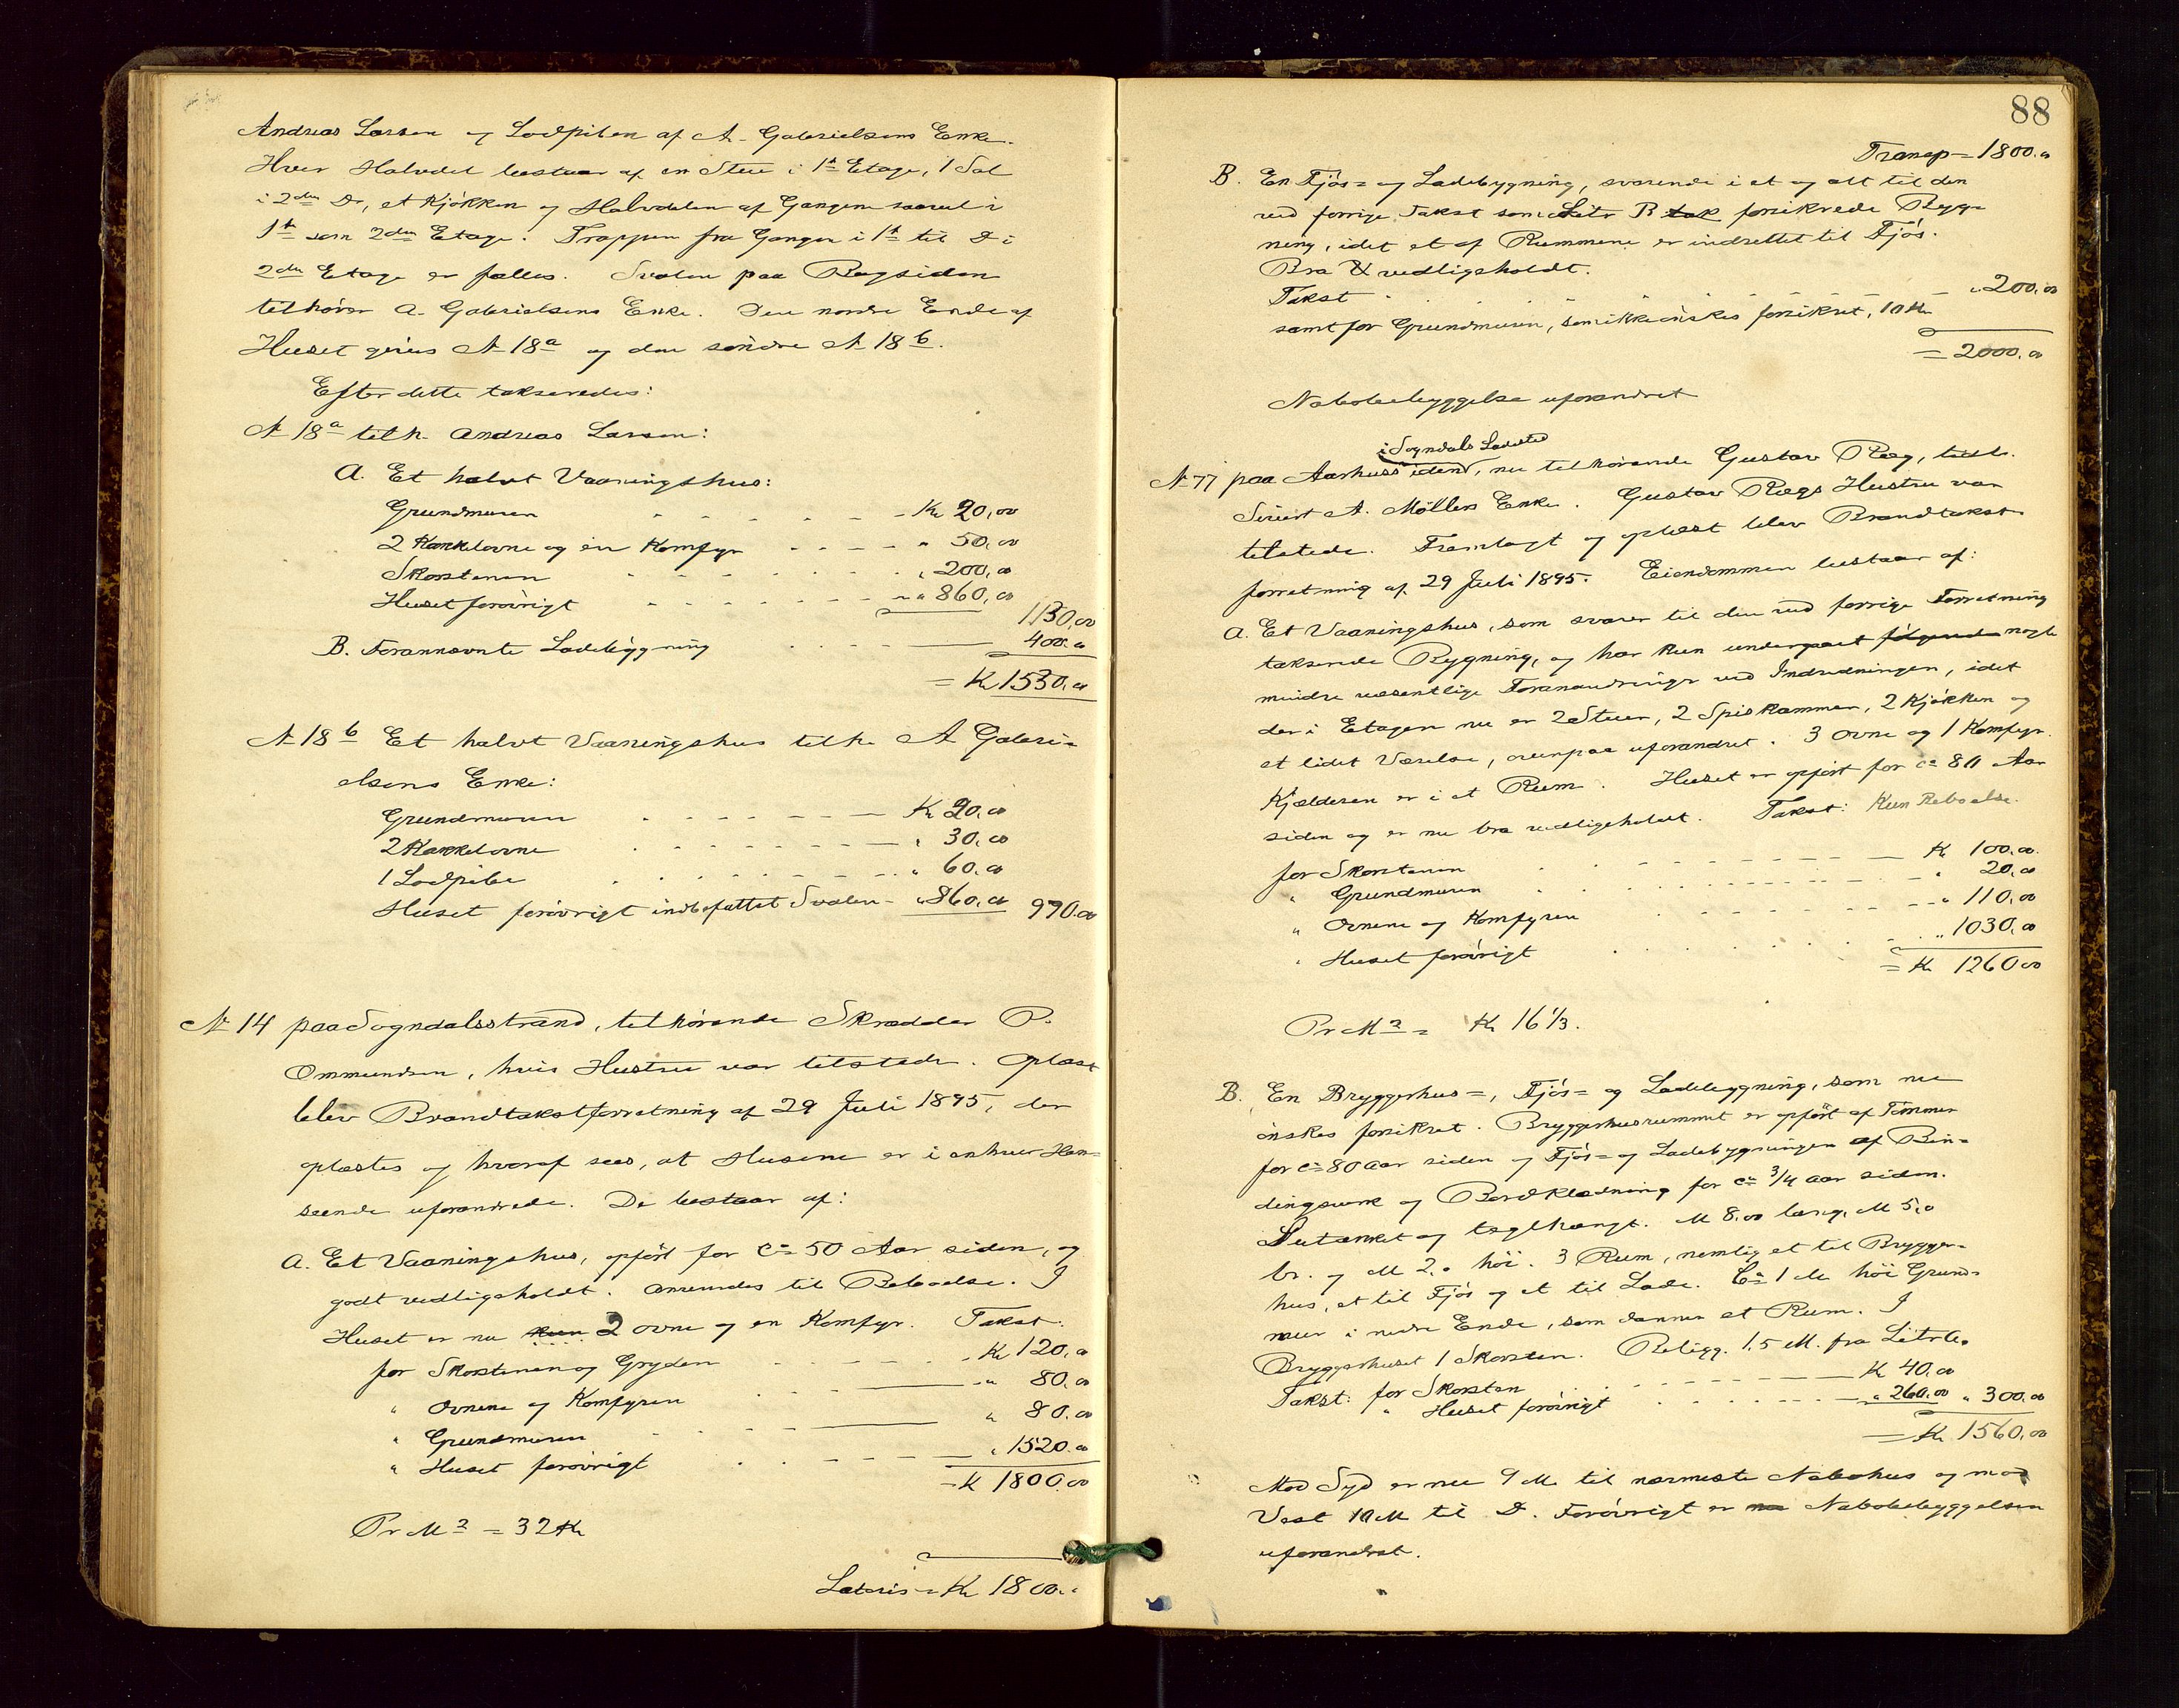 Andreas Larsen og Lodpiben af A. Gabrielsens Enke.
Hver Halvdel bestaar af en Stue i 1st Etage, 1 Sal
i 2den Do, et Kjøkken og Halvdelen af Gangene saavel i
1st som 2den Etage. Trappen fra Gangen i 1st til Do i
2den Etage er fælles. Svalen paa Bagsiden
tilhører A. Gabrielsens Enke. Den nordre Ende af
Huset gives No 18a og den søndre No 18b.
Efter dette takseredes:
No 18a tilh. Andreas Larsen:
A. Et halvt Vaaningshus:
Grundmuren Kr 20,00
2 Kakkelovne og en Komfyr " 50,00
Skorstenen " 200,00
Huset forøvrigt " 860,00
1130,00
B. Forannævnte Ladebygning 400.00
= Kr 1530.00
No 18b Et halvt Vaaningshus tilh. A Gabri-
elsens Enke:
Grundmuren Kr 20,00
2 Kakkelovne " 30,00
1 Lodpibe " 60,00
Huset forøvrigt indbefattet Svalen " 860,00 990.00
No 14 paa Sogndalsstrand, tilhørende Skrædder P.
Ommundsen, hvis Hustru var tilstede. Oplæst
blev Brandtakstforretning af 29 Juli 1895, der
oplæstes og hvoraf saes, at Husene er i enhver Hen-
seende uforandrede. De bestaar af:
A. Et Vaaningshus, opført for ca 50 Aar siden, og
godt vedligeholdt. Anvendes til Beboelse. I
Huset er nu kun 2 ovne og en Komfyr. Takst:
for Skorstenen og Gryden Kr 120,00
" Ovnene og Komfyren " 80,00
" Grundmuren " 80,00
" Huset forøvrigt " 1520.00
= Kr 1800.00
Pr M2 = 32 Kr
Lateris = Kr 1800..
88
Transp = 1800.00
B. En Fjøs= og Ladebygning, svarende i et og alt til den
ved forrige Takst som Litr B tak forsikrede Bygg-
ning, idet et af Rummene er indrettet til Fjøs.
Bra vedligeholdt.
Takst " 200,00
samt for Grundmuren, som ikke ønskes forsikret, 10 Kr
= 2000.00
Nabobebyggelse uforandret
i Sogndals Ladested
No 77 paa Aarhussiden, nu tilhørende GustavRæg, tidl.
Sivert A. Møllers Enke. Gustav Rægs Hustru var
tilstede. Fremlagt og oplæst blev Brandtakst-
forretning af 29 Juli 1895. Eiendommen bestaar af:
A. Et Vaaningshus, som svarer til den ved forrige Forretning
takserede Bygning, og har kun undergaaet følgende nogle
mindre væsentlige Forandringer ved Indredningen, idet
der i Etagen nu er 2 Stuer, 2 Spiskammer, 2 Kjøkken og
et lidet Værelse, ovenpaa uforandret. 3 Ovne og 1 Komfyr.
Kjælderen er i et Rum. Huset er opført for ca 80 Aar
siden og er nu bra vedligeholdt. Takst: Kun Beboelse.
for Skorstenen Kr 100.00
" Grundmuren " 20,00
" Ovnene og Komfyren " 110,00
" Huset forøvrigt " 1030,00
= Kr 1260 00
Pr M2 = Kr 16 1/3.
B. En Bryggerhus=, Fjøs= og Ladebygning, som nu
ønskes forsikret. Bryggerhusrummet er opført af Tømmer
for ca 80 Aar siden og Fjøs= og Ladebygningen af Bin-
dingsverk og Bordklædning for ca 3/4 aar siden.
Lutanket og teglhængt. M 8.00 lang, M 5,0
br. og M 2,0 høi. 3 Rum, nemlig et til Brygger-
hus, et til Fjøs og et til Lade. Ca 1 M høi Grund-
mur i nedre Ende, som danner et Rum. I
Bryggerhuset 1 Skorsten. Beligg. 1.5 M. fra Litr a.
Takst: for Skorsten Kr 40,00
" Huset forøvrigt " 260.00 " 300,00
= Kr 1560,00
Mod Syd er nu 9 M til nærmeste Nabohus og mod
Vest 10 M til Do. Forøvrigt er Nabobebyggelsen
uforandret.